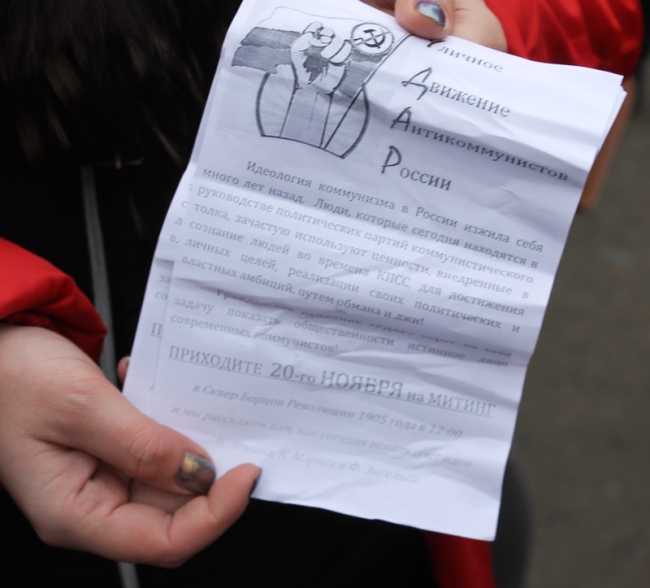 Уличное
Движение
Антикоммунистов
России
Идеология коммунизма в России изжила себя
много лет назад. Люди, которые сегодня находятся в
руководстве политических партий коммунистического
толка, зачастую используют ценности, внедренные в
сознание людей во времена КПСС, для достижения
личных целей, реализации своих политических и
властных амбиций, путем обмана и лжи!
задачу показать общественности истинное лицо
современных коммунистов!
ПРИХОДИТЕ 20-го НОЯБРЯ на МИТИНГ
в Сквер Борцов Революции 1905 года в 12:00
и мы расскажем вам, как сегодня
В. Ленина, К. Маркса и Ф. Энгельса